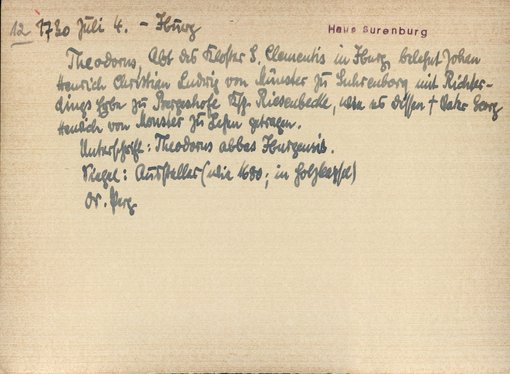 12 1730 Juli 4. - Iburg
Haus Surenburg
Theodorus, Abt des Kloster S. Clementis in Iburg belehnt Johan
Henrich Christian Ludwig von Münster zu Suhrenburg mit Richter-
dings Erbe zu Bergeshofe Ksp. Riesenbecke, wie es dessen † Vater Georg
Henrich von Monster zu getragen.
Unterschrift: Theodorus abbas Iburgensis.
Siegel: Aussteller (wie 1680; in Holzkapsel)
Or. Perg.